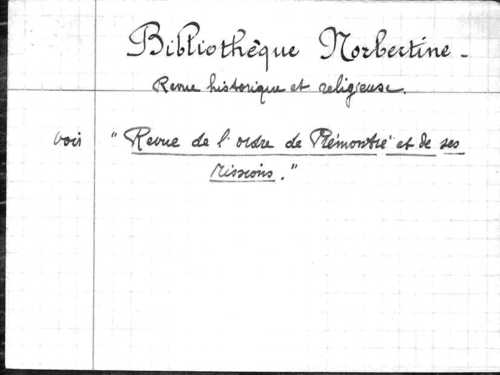 Bibliothèque Norbertine -
Revue historique et religieuse.
voir "Revue de l'ordre de Prémontré et de ses
Missions."